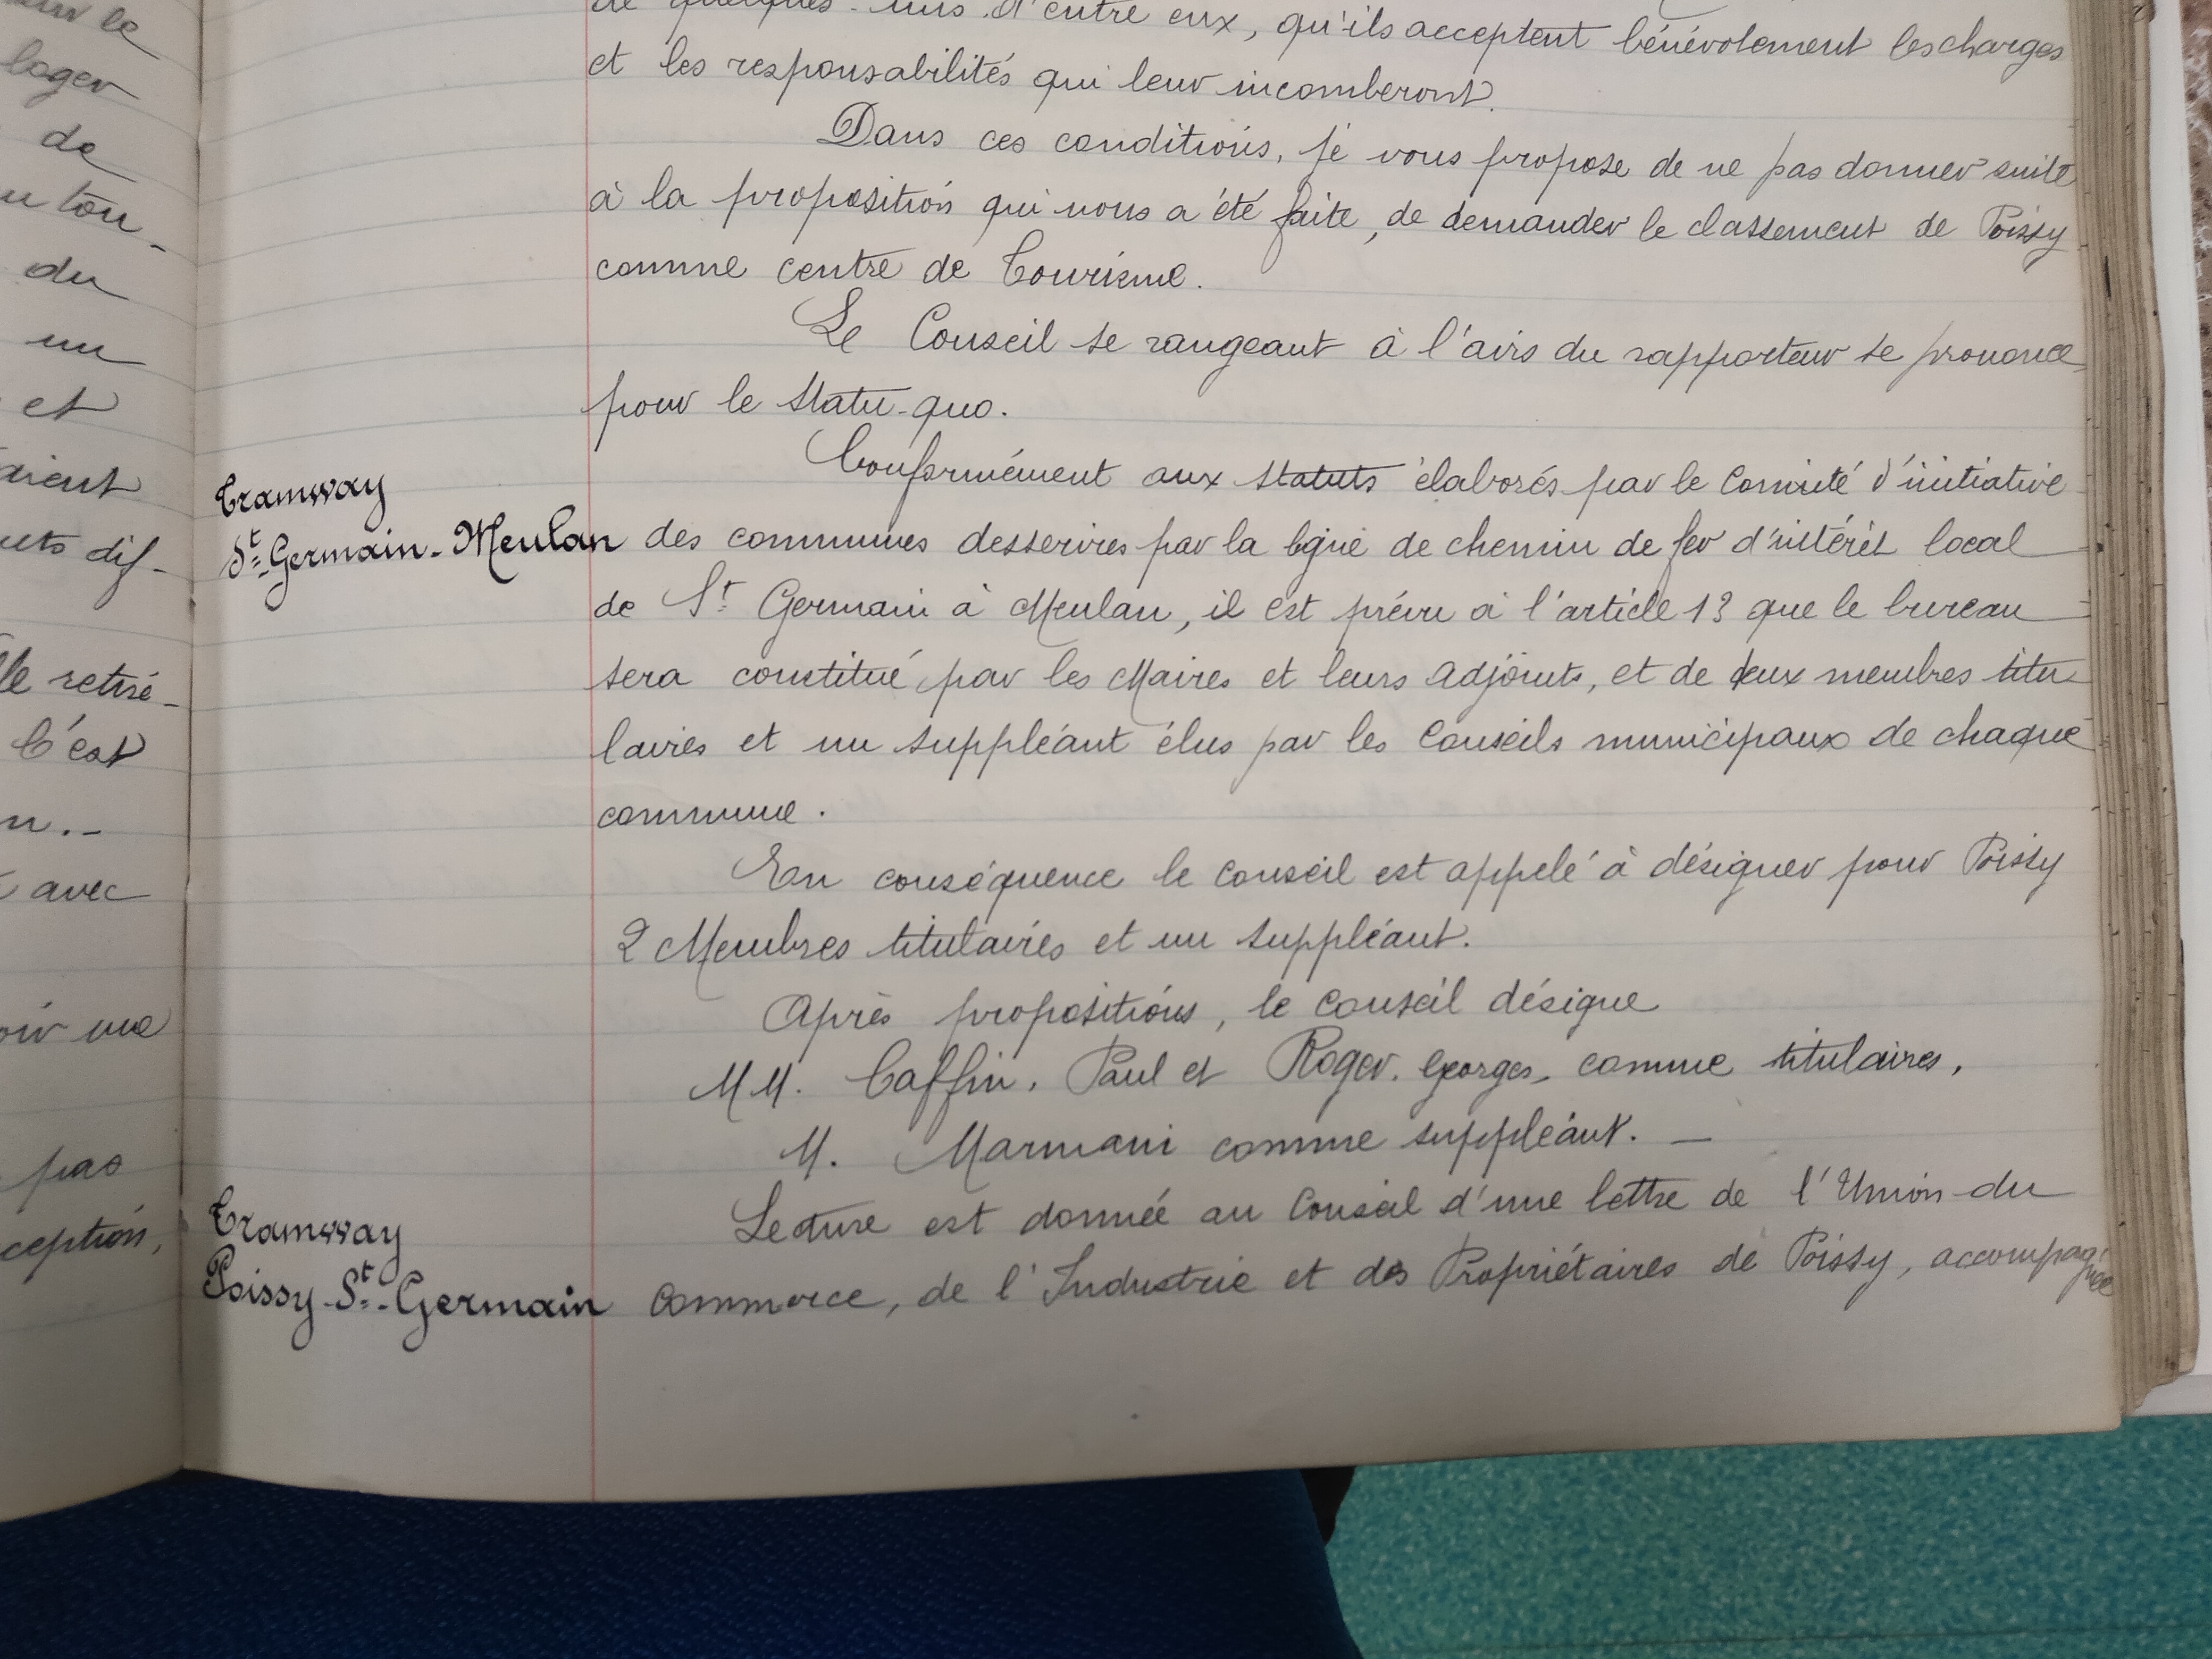 ur le
loger
de
u tou-
du
un
et
aient
uts dif-
lle retiré-
C'est
n.-
avec
oir une
pas
ception,
de quelques-uns d'entre eux, qu'ils acceptent bénévolement les charges
et les responsabilités qui leur incomberont.
Dans ces conditions, je vous propose de ne pas donner suite
à la proposition qui nous a été faite, de demander le classement de Poissy
comme centre de Tourisme.
Le Conseil se rangeant à l'avis du rapporteur se prononce
pour le statu-quo.
Tramway
St-Germain-Meulan
Conformément aux statuts élaborés par le Comité d'initiative
des communes desservies par la ligne de chemin de fer d'intérêt local
de St Germain à Meulan, il est prévu à l'article 13 que le bureau
sera constitué par les Maires et leurs adjoints, et de deux membres titu
laires et un suppléant élus par les Conseils municipaux de chaque
commune.
En conséquence le Conseil est appelé à désigner pour Poissy
2 Membres titulaires et un suppléant.
Après propositions, le Conseil désigne
MM. Caffin, Paul et Roger, Georges, comme titulaires,
M. Marmani comme suppléant. —
Tramway
Poissy-St-Germain
Lecture est donnée au Conseil d'une lettre de l'Union du
Commerce, de l'Industrie et des Propriétaires de Poissy, accompagnée